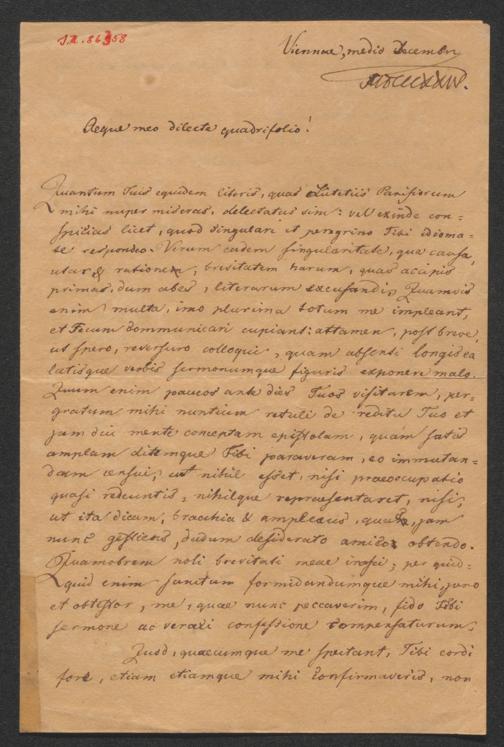 I.N. 86358
Viennae, medio Decembr
MDCCCLXXIV.
Aeque meo dilecte quadrifolio!
Quantum Tuis equidem literis, quas Lutetiis Parisiorum
mihi nuper miseras, delectatus sim: vel exinde con=
spicias licet, quod singulari et peregrino Tibi idioma=
te respondeo. Verum eadem singularitate, qua causa,
utar & ratione, brevitatem harum, quas accipis
primas, dum abes, literarum excusandi. Quamvis
enim multa, imo plurima totum me impleant,
et Tecum communicari cupiant: attamen, post breve,
ut spero, reversuro colloqui, quam absenti longis ea
latisque verbis sermonumque figuris exponere malo.
Quum enim paucos ante dies Tuos visitarem, per=
gratum mihi nuntium retuli de reditu Tuo et
jam diu mente conceptam epistolam, quam satis
amplam ditemque Tibi paraveram, eo immutan=
dam censui, ut nihil esset, nisi praeoccupatio
quasi redeuntis, nihilque repraesentaret, nisi,
ut ita dicam, bracchia & amplexus, quos, jam
nunc gestiens, dudum desiderato amico obtendo.
Quamobrem noli brevitati meae irasci; per quid=
quid enim sanctum formidandumque mihi, juro
et obtestor, me, quae nunc peccaverim, fido Tibi
sermone ac veraci confessione compensaturum.
Quod, quaecumque me spectant, Tibi cordi
fore, etiam etiamque mihi confirmaveris, non